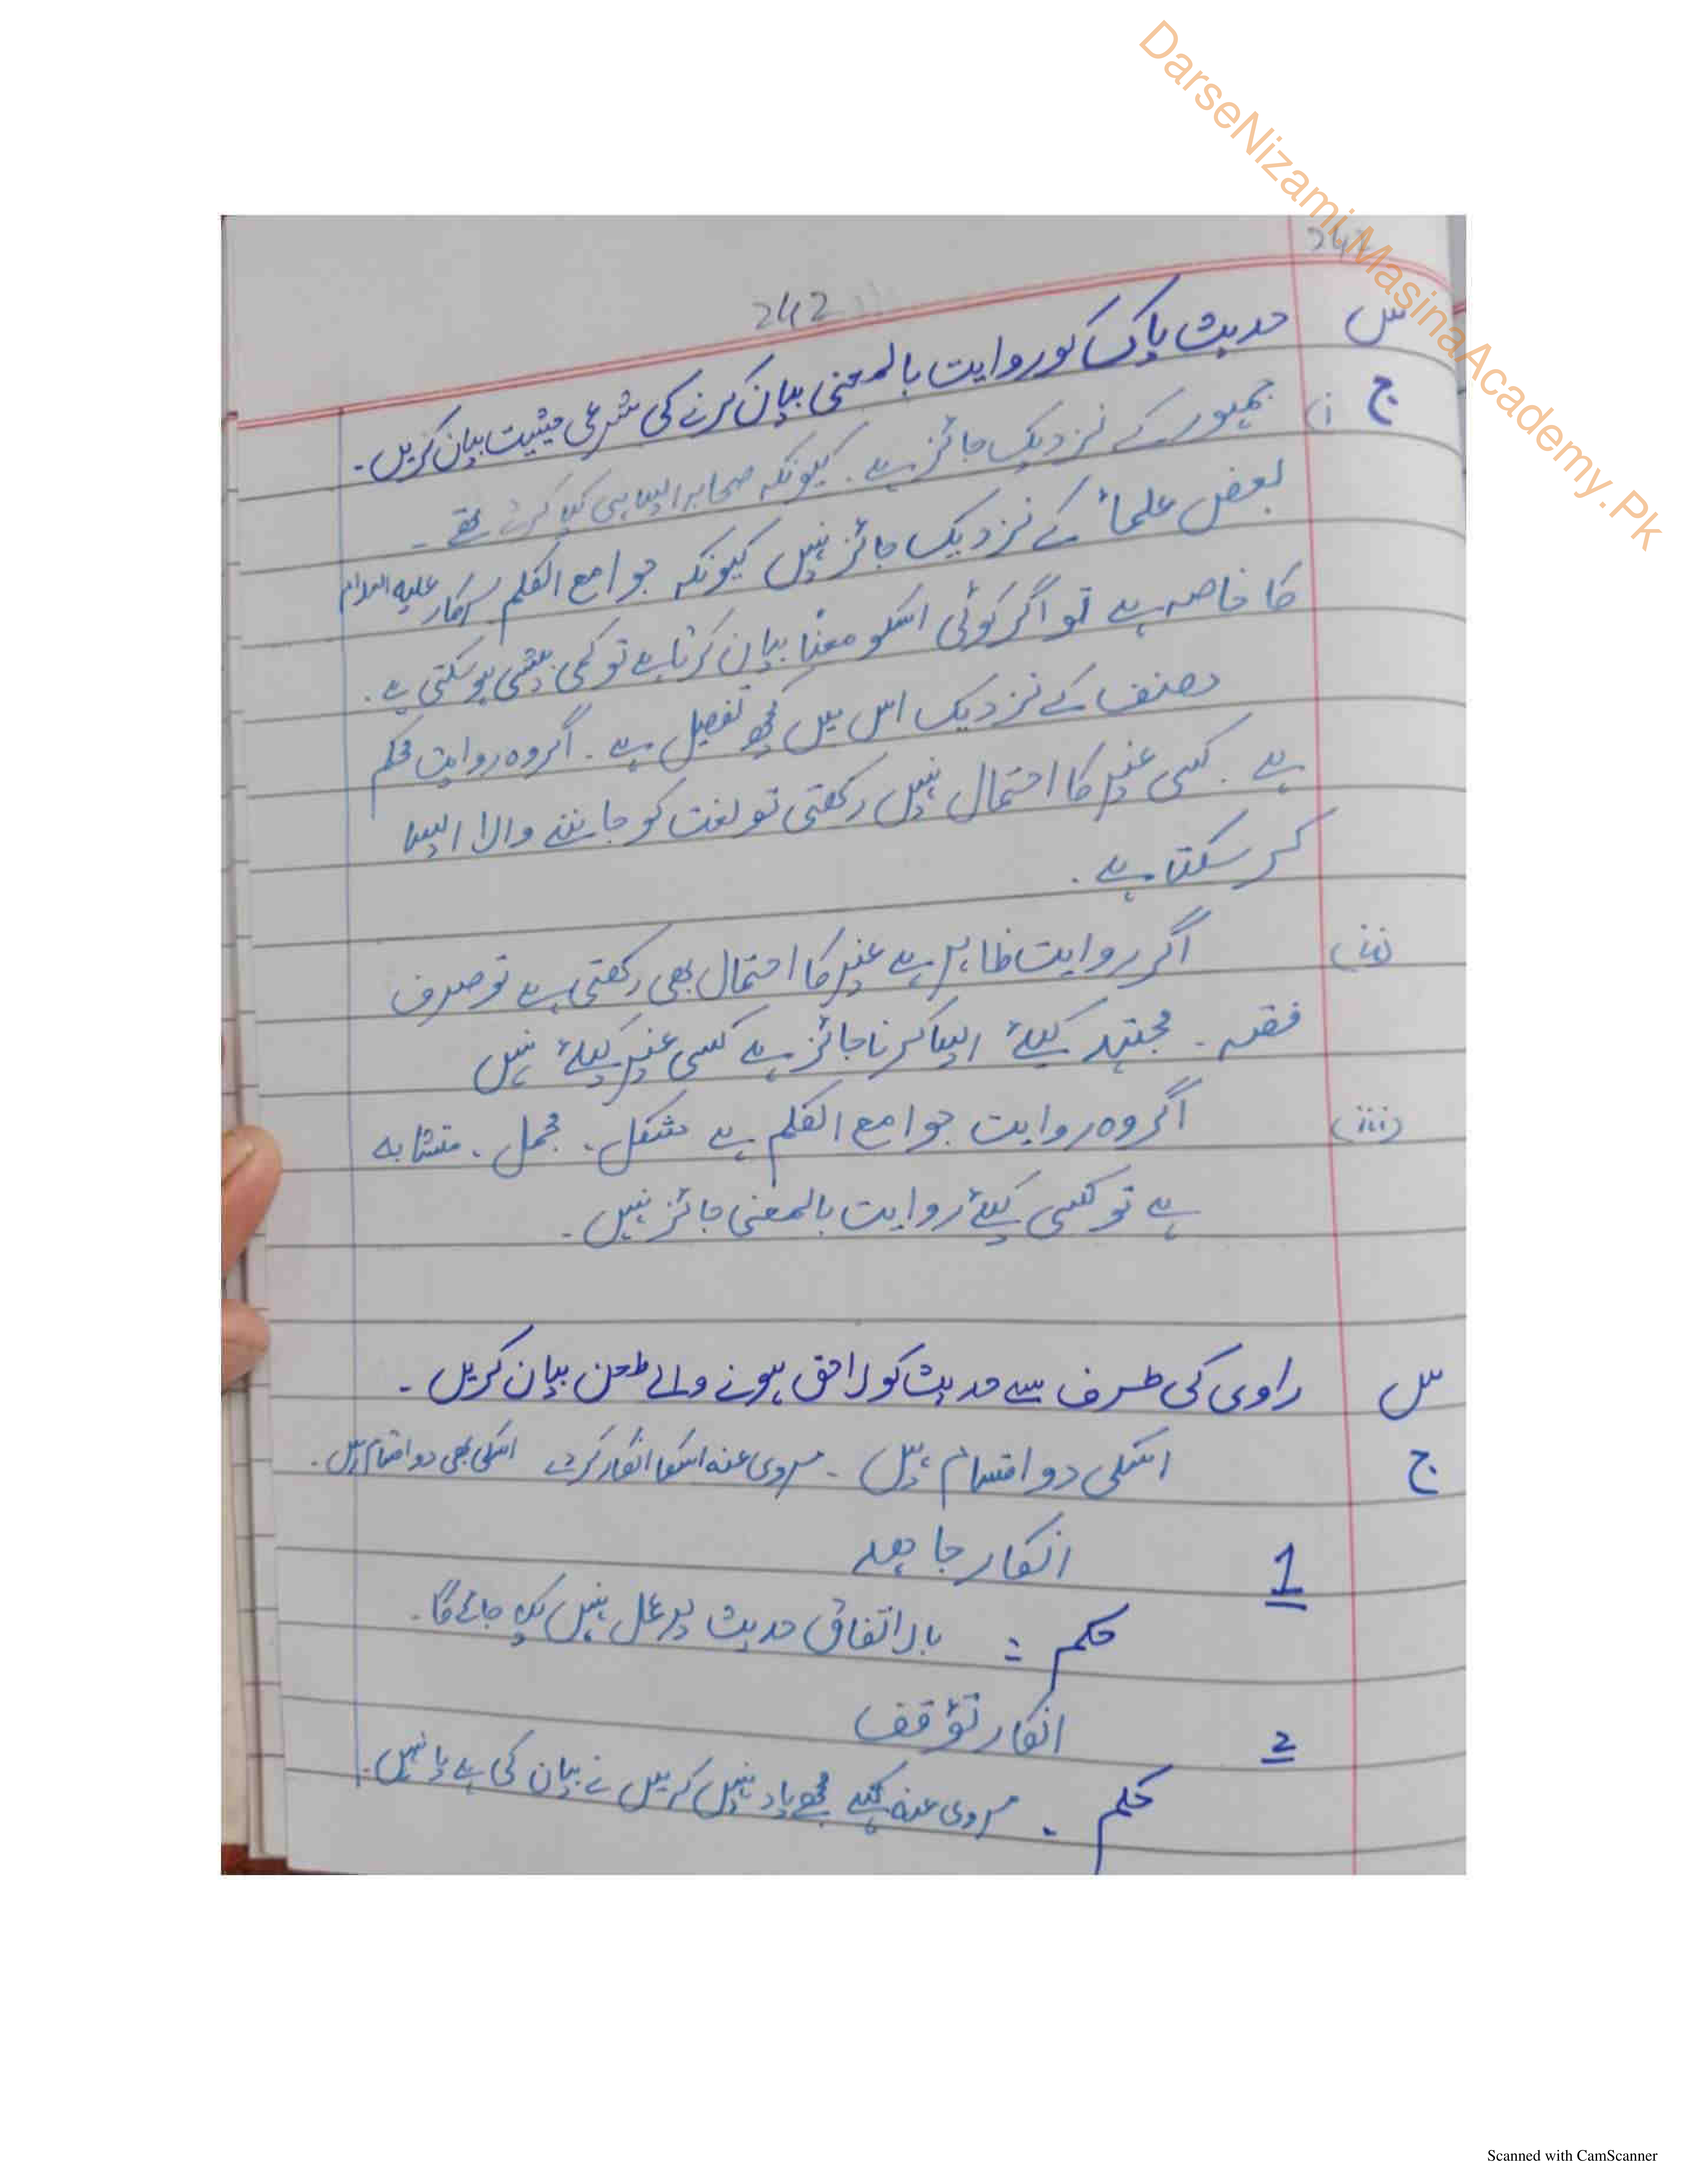 DarseNizami.MasinaAcademy.Pk
242
242
س حدیث پاک کو روایت بالمعنی بیان کرنے کی شرعی حیثیت بیان کریں۔
ج (i جمہور کے نزدیک جائز ہے۔ کیونکہ صحابہ ایسا ہی کیا کرتے تھے۔
بعض علماء کے نزدیک جائز نہیں کیونکہ جوامع الکلم سرکار علیہ السلام
کا خاصہ ہے تو اگر کوئی اسکو معنًا بیان کرتا ہے تو کمی بیشی ہو سکتی ہے۔
مصنف کے نزدیک اس میں کچھ تفصیل ہے۔ اگر وہ روایت محکم
ہے۔ کسی غیر کا احتمال نہیں رکھتی تو لغت کو جاننے والا ایسا
کر سکتا ہے۔
(ii) اگر روایت ظاہر ہے غیر کا احتمال بھی رکھتی ہے تو صرف
فقہ۔ مجتہد کیلئے ایسا کرنا جائز ہے کسی غیر کیلئے نہیں
(iii) اگر وہ روایت جوامع الکلم ہے مشکل، مجمل، متشابہ
ہے تو کسی کیلئے روایت بالمعنی جائز نہیں۔
س راوی کی طرف سے حدیث کو لاحق ہونے والے طعن بیان کریں۔
ج اسکی دو اقسام ہیں۔ مروی عنہ اسکا انکار کردے اسکی بھی دو اقسام ہیں۔
1 انکار جاحد
حکم : بالاتفاق حدیث پر عمل نہیں کیا جائے گا۔
2 انکار تؤقف
حکم ۔ مروی عنہ کہے مجھے یاد نہیں کہ میں نے بیان کی ہے یا نہیں۔
Scanned with CamScanner